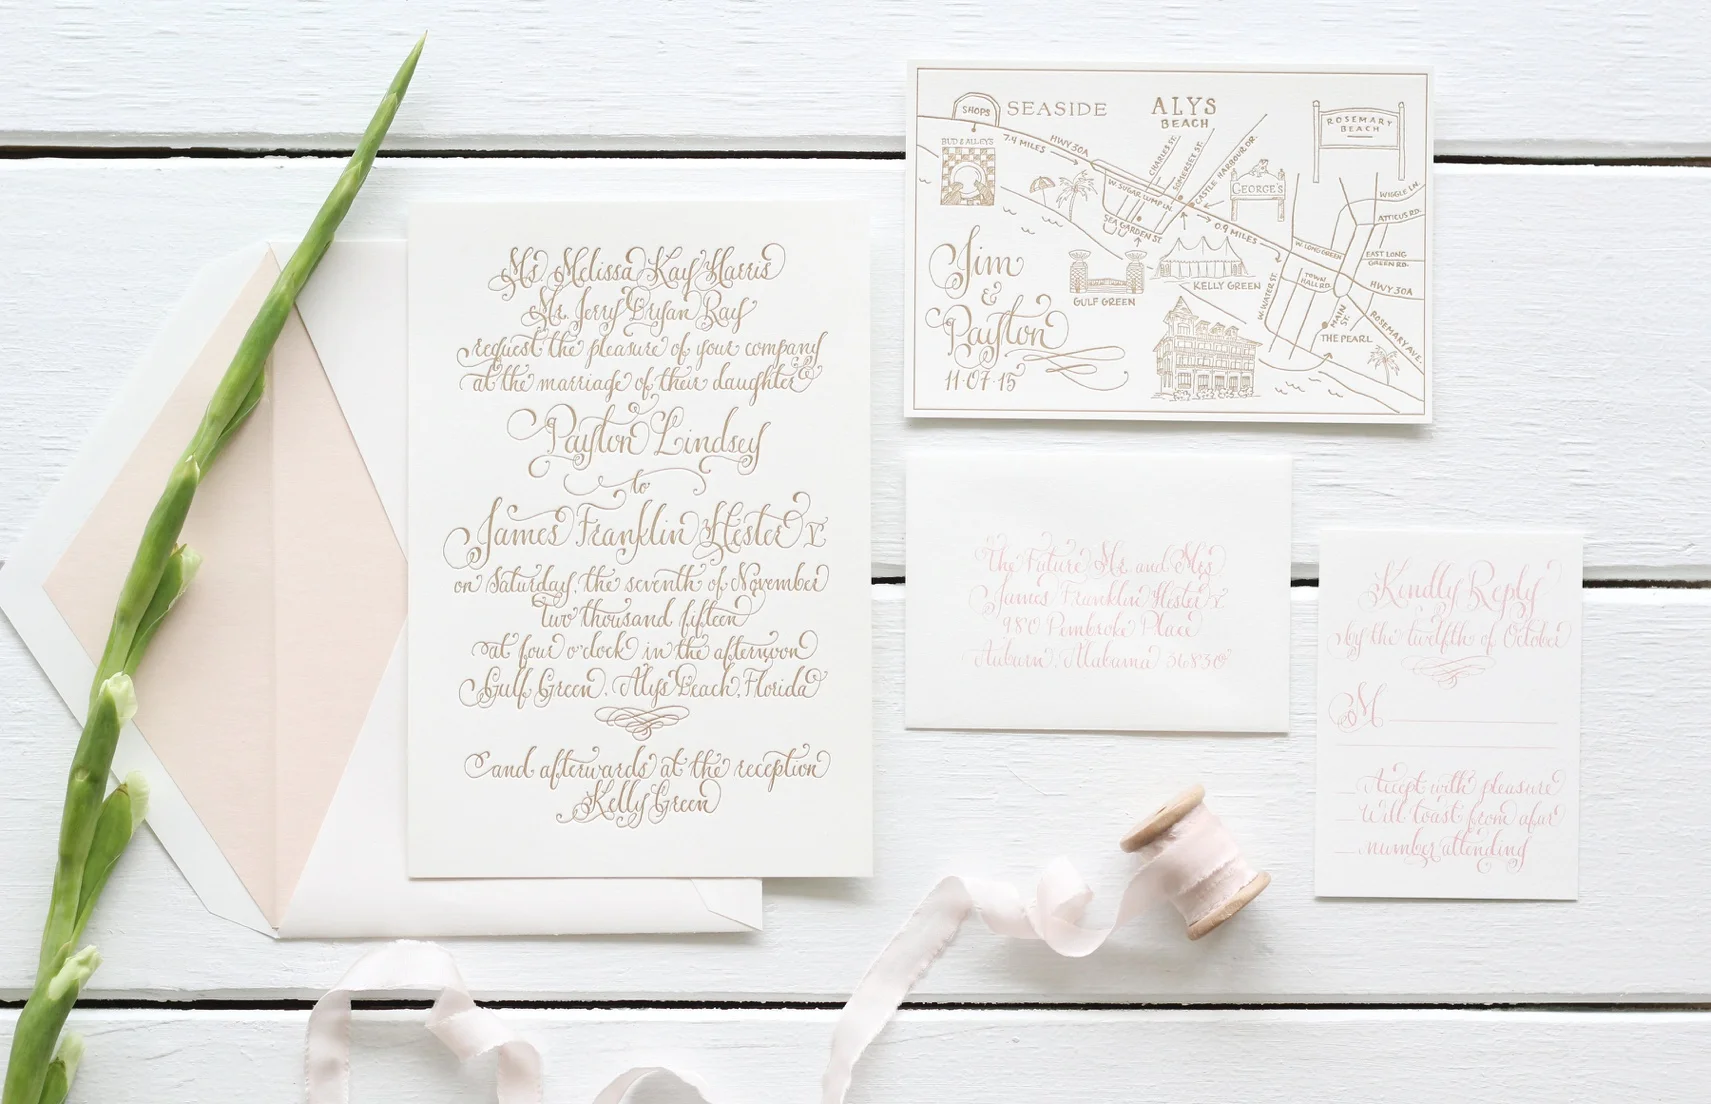 Ms. Melissa Kay Harris
Mr. Jerry Bryan Ray
request the pleasure of your company
at the marriage of their daughter
Payton Lindsey
to
James Franklin Hester V
on Saturday, the seventh of November
two thousand fifteen
at four o'clock in the afternoon
Gulf Green, Alys Beach, Florida
and afterwards at the reception
Kelly Green
SHOPS
SEASIDE
ALYS
BEACH
ROSEMARY
BEACH
BUD & ALLEYS
7.4 MILES
HWY 30A
CHARLES ST.
SOMERSET ST.
CASTLE HARBOUR DR.
W. SUGAR LUMP LN.
SEA GARDEN ST.
GEORGE'S
0.9 MILES
WIGGLE LN.
ATTICUS RD.
W. LONG GREEN
EAST LONG
GREEN RD.
GULF GREEN
KELLY GREEN
W. WATER ST.
TOWN
HALL RD.
HWY 30A
MAIN
ST.
ROSEMARY AVE.
THE PEARL
Jim
&
Payton
11·07·15
The Future Mr. and Mrs.
James Franklin Hester V.
980 Pembroke Place
Auburn, Alabama 36830
Kindly Reply
by the twelfth of October
M
Accept with pleasure
Will toast from afar
number attending